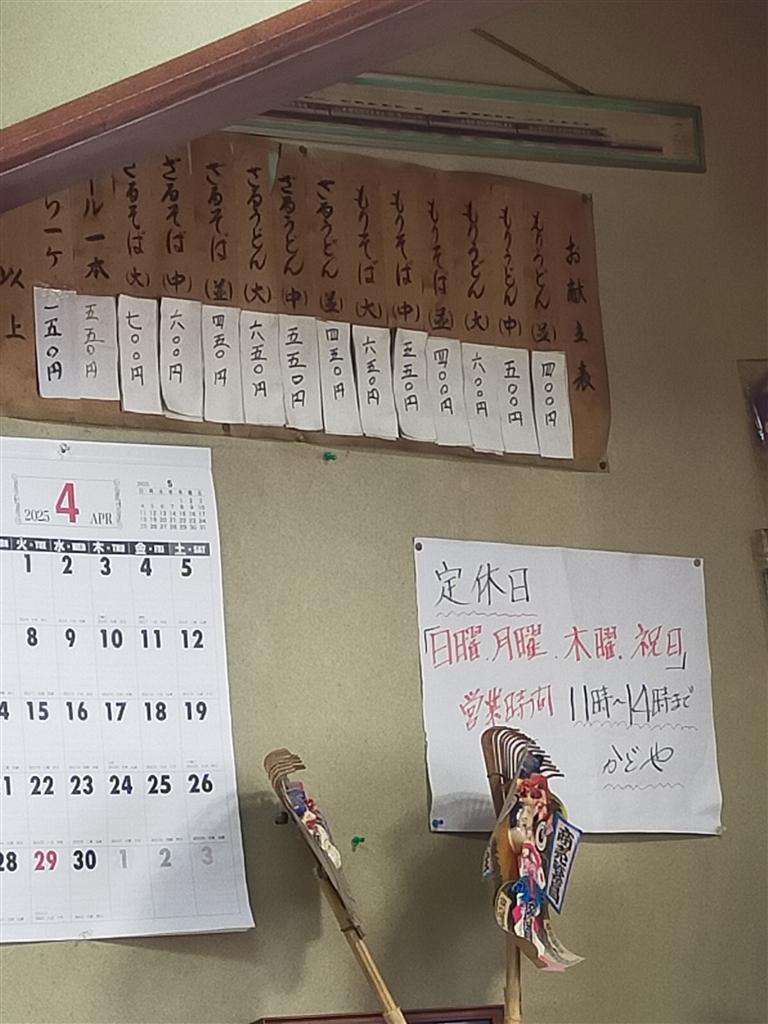 お献立表
もりうどん(並) 四〇〇円
もりうどん(中) 五〇〇円
もりうどん(大) 六〇〇円
もりそば(並) 四〇〇円
もりそば(中) 五五〇円
もりそば(大) 六五〇円
ざるうどん(並) 四五〇円
ざるうどん(中) 五五〇円
ざるうどん(大) 六五〇円
ざるそば(並) 四五〇円
ざるそば(中) 六〇〇円
ざるそば(大) 七〇〇円
ール一本 五五〇円
り一ケ 一五〇円
以上
2025 4 APR
火・TUE 水・WED 木・THU 金・FRI 土・SAT
1 2 3 4 5
8 9 10 11 12
15 16 17 18 19
22 23 24 25 26
28 29 30 1 2 3
定休日
「日曜.月曜.木曜.祝日」
営業時間 11時〜14時まで
かどや
商売繁昌